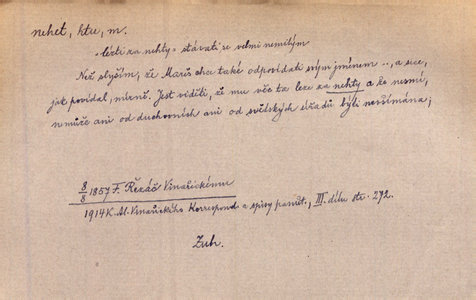 nehet, htu, m.
"lézti za nehty" stávati se velmi nemilým
Než slyším, že Mareš chce také odpovídati svým jménem .., a sice,
jak povídal, mírně. Jest viděti, že mu věc ta leze za nehty a že nesmí,
nemůže ani od duchovních ani od světských úřadů býti nevšímána;
8/8 1857 F. Řezáč Vinařickému
1914 K. Al. Vinařického Korrespond a spisy pamět., III. dílu str. 272.
Zub.